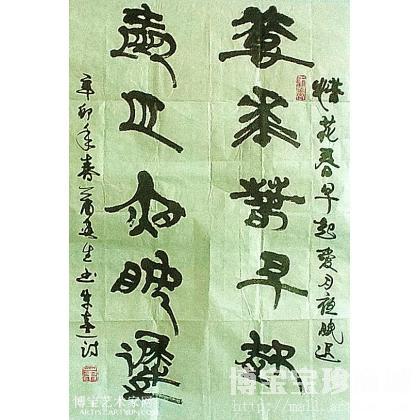 惜花春早起爱月夜眠迟
惜花春早起
愛月夜眠遲
辛卯年春生书朱熹诗
博宝艺术家网
ARTIST.ARTXUN.COM
博宝宝珍